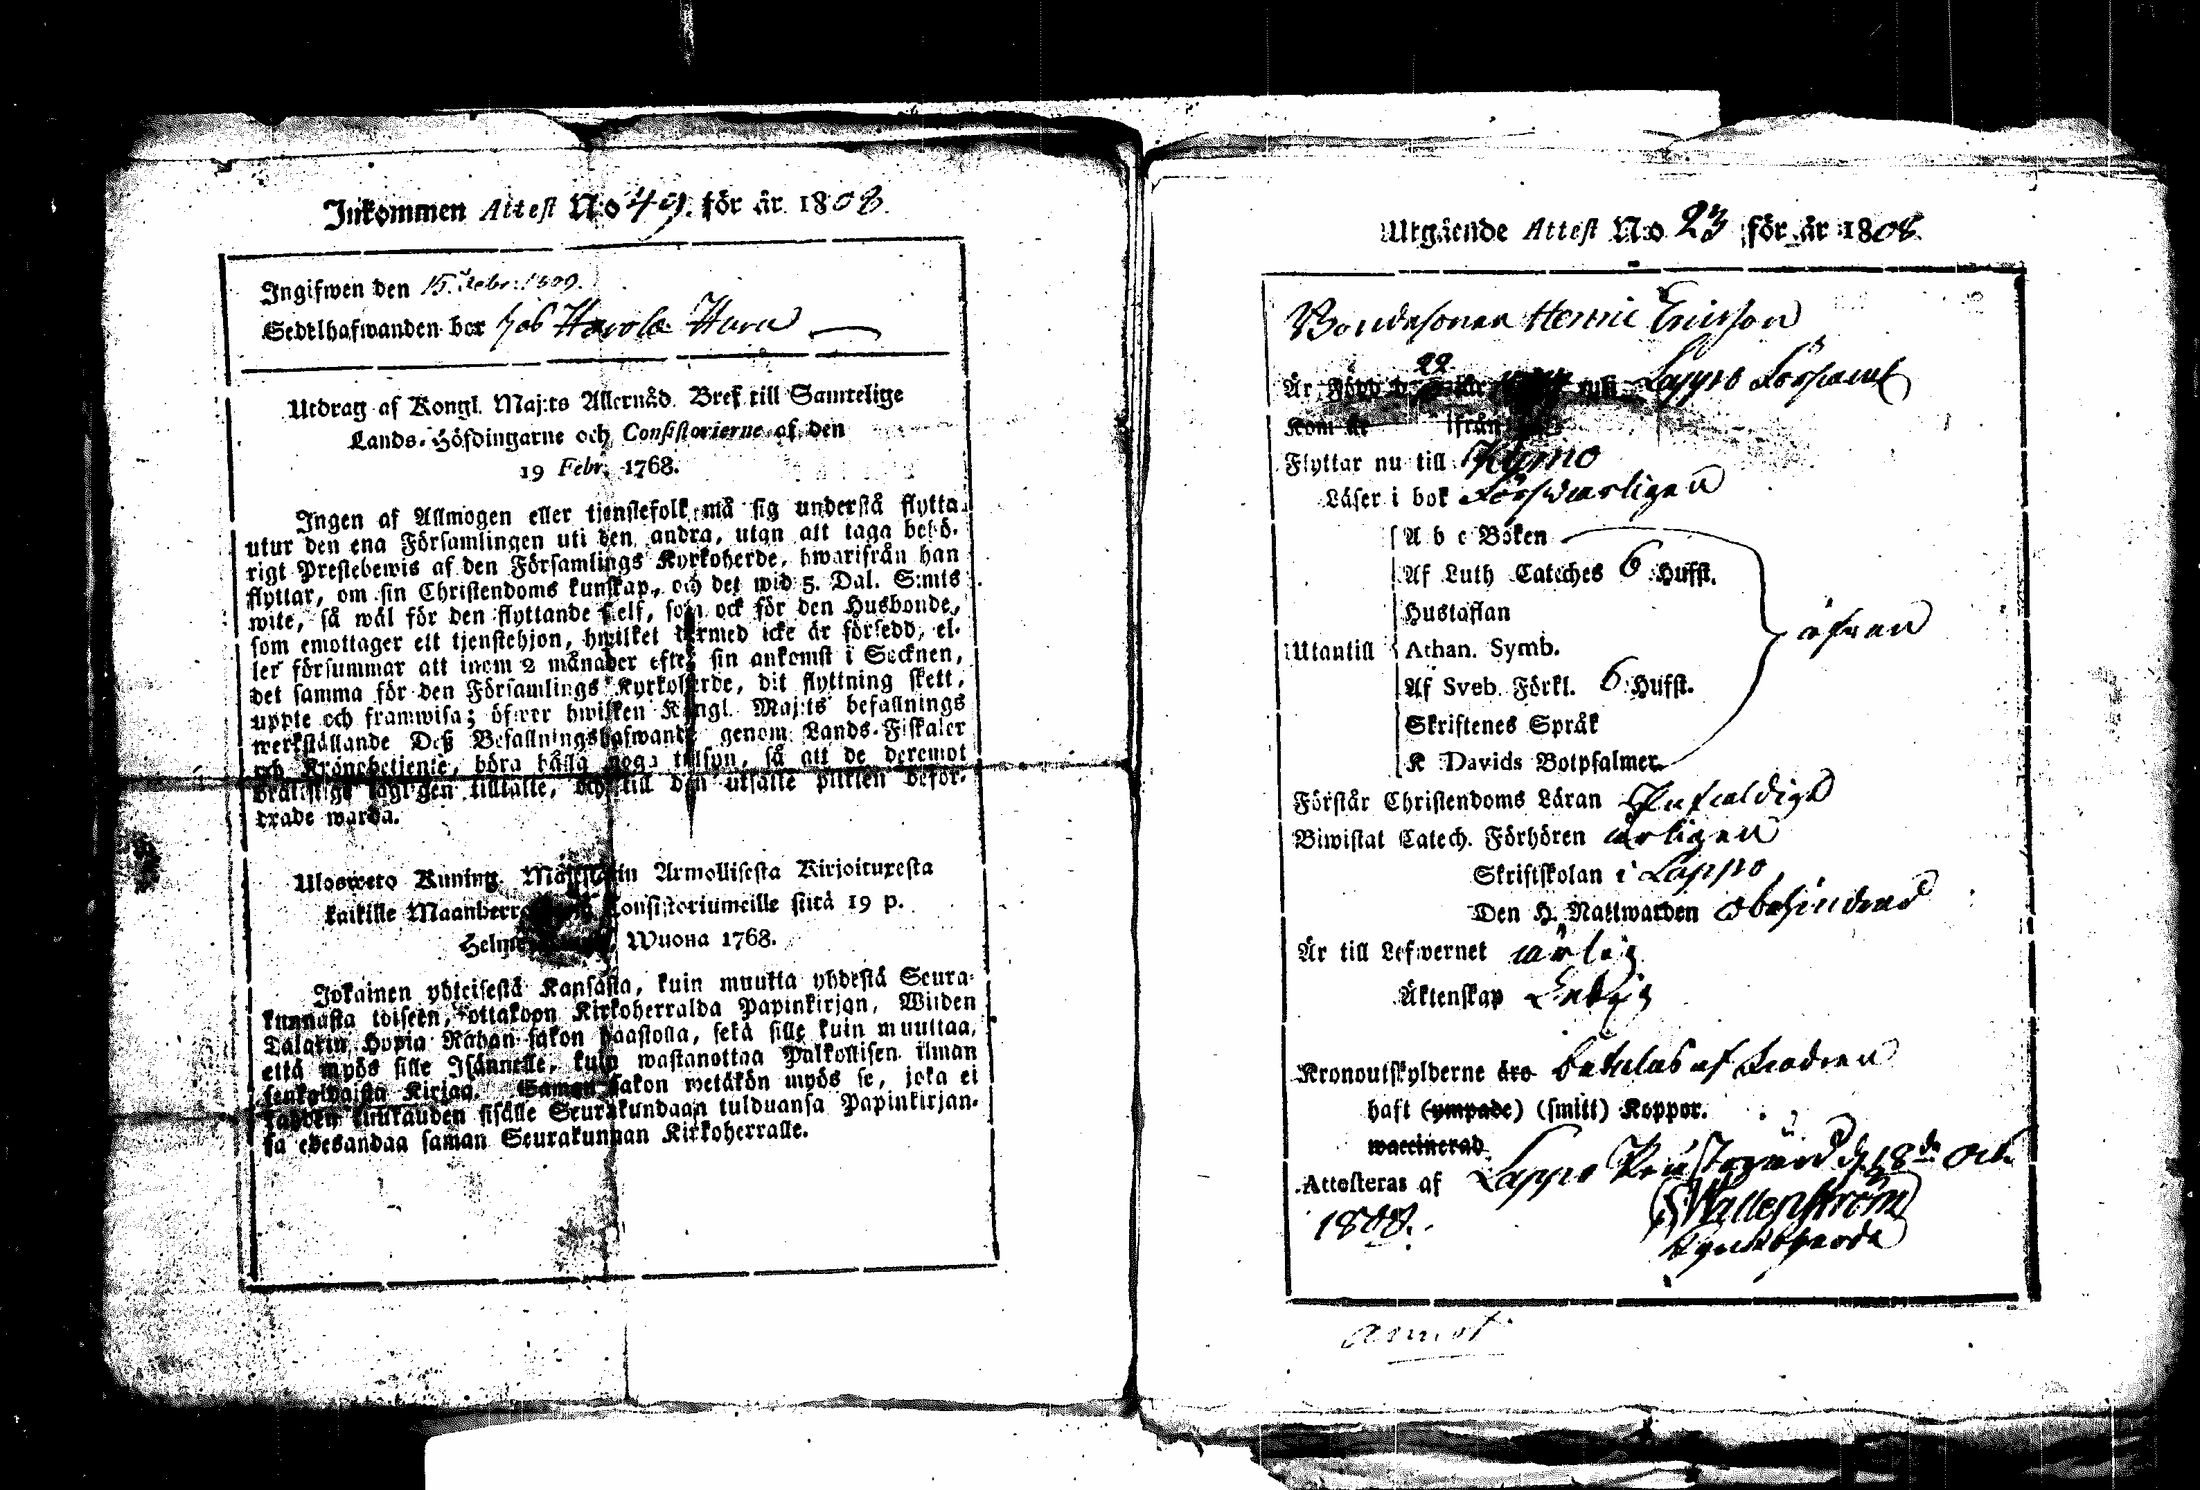 Inkommen Attest N:o 49. för år 1808.
Ingifwen den 15. Febr: 1809.
Sedelhafwanden bor hos Harola Hura
Utdrag af Kongl. Maj:ts Allernåd. Bref till Samtelige
Lands-Höfdingarne och Consistorierne af den
19 Febr. 1768.
Ingen af Allmogen eller tjenstefolk må sig understå flytta
utur den ena Församlingen uti den andra, utan att taga behö-
rigt Prestebewis af den Församlings Kyrkoherde, hwarifrån han
flyttar, om sin Christendoms kunskap, och det wid 5. Dal. S:mts
wite, så wäl för den flyttande sjelf, som ock för den Husbonde,
som emottager ett tjenstehjon, hwilket därmed icke är försedd, el-
ler försummar att inom 2 månader efter sin ankomst i Socknen,
det samma för den Församlings Kyrkoherde, dit flyttning skett,
uppte och framwisa; öfwer hwilken Kongl. Maj:ts befallnings
werkställande Deß Befallningshafwande genom Lands-Fiskaler
och Kronobetjenie, böra hålla noga tillsyn, så att de deremot
brottslige lagligen tilltalte, och till den utsatte plikten beför-
drade warda.
Ulosweto Kuning. Majestetin Armollisesta Kirjoituxesta
kaikille Maanherroille Consistoriumeille siitä 19 p.
Helme Wuona 1768.
Jokainen yhteisestä Kansasta, kuin muutta yhdestä Seura-
kunnasta toiseen, ottakoon Kirkoherralda Papinkirjan, Wiiden
Talarin Hopia Rahan sakon haastolla, sekä sille kuin muuttaa,
että myös sille Isännelle, kuin wastanottaa Palkollisen ilman
senkaldaista Kirjaa. Saman sakon wetäkön myös se, joka ei
kahden kuukauden sisälle Seurakundaan tulduansa Papinkirjan-
sa edesandaa saman Seurakunnan Kirkoherralle.
Utgående Attest N:o 23 för år 1808.
Bondesonen Henric Ericson
22
Är Född uti Lappo Församl.
Kom år ifrån
Flyttar nu till Kumo
Läser i bok Förswarligen
A b c Boken
Af Luth Cateches 6 Hufst.
Hustaflan
Utantill Athan. Symb. äfwen
Af Sveb. Förkl. 6 Hufst.
Skriftenes Språk
K Davids Botpsalmer
Förstår Christendoms Läran Enfaldigt
Biwistat Catech. Förhören årligen
Skriftskolan i Lappo
Den H. Nattwarden obehindrad
Är till Lefwernet ärlig
Äktenskap Ledig
Kronoutskylderne äro betalas af Fadren
haft (ympade) (smitt) Koppor.
waccinerad
Attesteras af Lappo Prästegård d. 18de Oct.
1808. Wallenström
Kyrkoherde